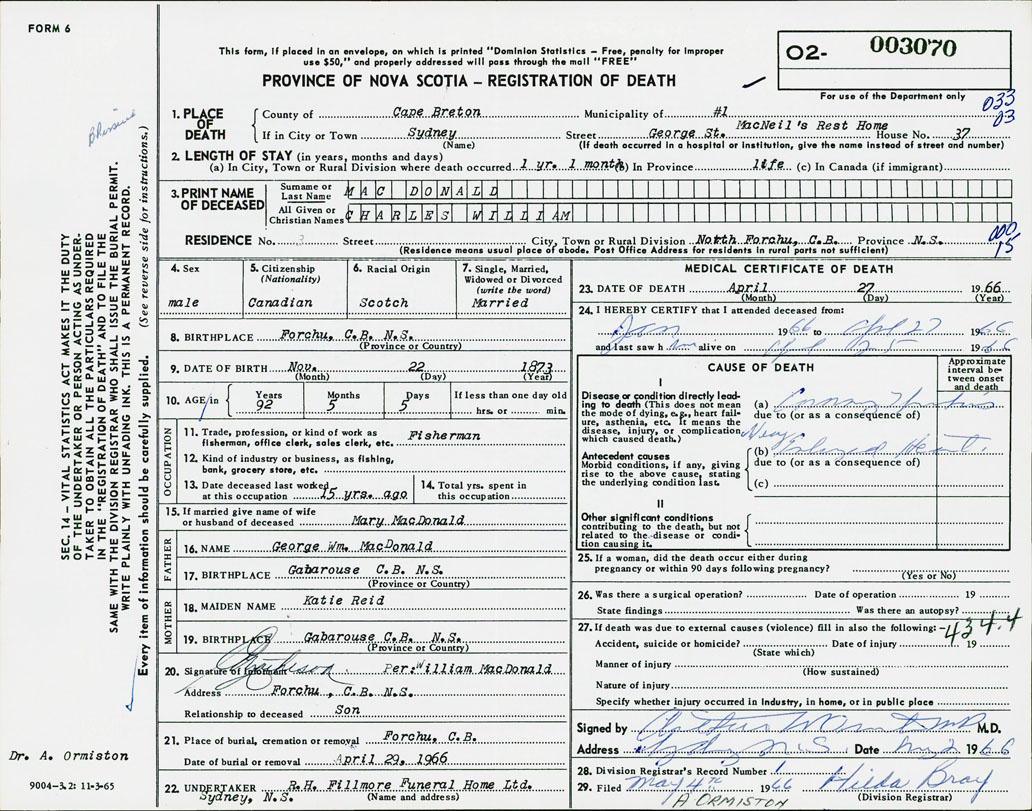 FORM 6
This form, if placed in an envelope, on which is printed "Dominion Statistics – Free, penalty for improper
use $50," and properly addressed will pass through the mail "FREE"
PROVINCE OF NOVA SCOTIA – REGISTRATION OF DEATH
O2- 003070
For use of the Department only
033
03
1. PLACE OF DEATH
County of Cape Breton Municipality of #1
If in City or Town Sydney Street George St. MacNeil's Rest Home House No. 37
(Name) (If death occurred in a hospital or institution, give the name instead of street and number)
2. LENGTH OF STAY (in years, months and days)
(a) In City, Town or Rural Division where death occurred 1 yr. 1 month (b) In Province life (c) In Canada (if immigrant)
3. PRINT NAME OF DECEASED
Surname or Last Name MAC DONALD
All Given or Christian Names CHARLES WILLIAM
000
15
RESIDENCE No. 3 Street City, Town or Rural Division North Forchu, C.B. Province N.S.
(Residence means usual place of abode. Post Office Address for residents in rural parts not sufficient)
4. Sex
male
5. Citizenship
(Nationality)
Canadian
6. Racial Origin
Scotch
7. Single, Married,
Widowed or Divorced
(write the word)
Married
8. BIRTHPLACE Forchu, C.B. N.S.
(Province or Country)
9. DATE OF BIRTH Nov. 22 1873
(Month) (Day) (Year)
10. AGE in Years Months Days If less than one day old
92 5 5 hrs. or min.
OCCUPATION
11. Trade, profession, or kind of work as
fisherman, office clerk, sales clerk, etc. Fisherman
12. Kind of industry or business, as fishing,
bank, grocery store, etc.
13. Date deceased last worked
at this occupation 15 yrs. ago
14. Total yrs. spent in
this occupation
15. If married give name of wife
or husband of deceased Mary MacDonald
FATHER
16. NAME George Wm. MacDonald
17. BIRTHPLACE Gabarouse C.B. N.S.
(Province or Country)
MOTHER
18. MAIDEN NAME Katie Reid
19. BIRTHPLACE Gabarouse C.B. N.S.
(Province or Country)
20. Signature of Informant Per. William MacDonald
Address Forchu, C.B. N.S.
Relationship to deceased Son
21. Place of burial, cremation or removal Forchu, C.B.
Date of burial or removal April 29, 1966
22. UNDERTAKER R.H. Fillmore Funeral Home Ltd.
Sydney, N.S. (Name and address)
MEDICAL CERTIFICATE OF DEATH
23. DATE OF DEATH April 27 1966
(Month) (Day) (Year)
24. I HEREBY CERTIFY that I attended deceased from:
Jan 1966 to Apl 27 1966
and last saw h im alive on Apl 25 1966
CAUSE OF DEATH
Approximate
interval between onset
and death
I
Disease or condition directly leading to death (This does not mean
the mode of dying, e.g., heart failure, asthenia, etc. It means the
disease, injury, or complication
which caused death.)
(a) Coronary
due to (or as a consequence of)
Antecedent causes
Morbid conditions, if any, giving
rise to the above cause, stating
the underlying condition last.
(b) Enlarged Heart.
due to (or as a consequence of)
(c)
II
Other significant conditions
contributing to the death, but not
related to the disease or condition causing it.
25. If a woman, did the death occur either during
pregnancy or within 90 days following pregnancy?
(Yes or No)
26. Was there a surgical operation? Date of operation 19
State findings Was there an autopsy?
27. If death was due to external causes (violence) fill in also the following:
434.4
Accident, suicide or homicide? Date of injury 19
(State which)
Manner of injury
(How sustained)
Nature of injury
Specify whether injury occurred in Industry, in home, or in public place
Signed by M.D.
Address Sydney N.S Date May 2 1966
28. Division Registrar's Record Number 1
29. Filed May 4th 1966 Hilda Bray
(Division Registry)
A ORMISTON
SEC. 14 – VITAL STATISTICS ACT MAKES IT THE DUTY
OF THE UNDERTAKER OR PERSON ACTING AS UNDER-
TAKER TO OBTAIN ALL THE PARTICULARS REQUIRED
IN THE "REGISTRATION OF DEATH" AND TO FILE THE
SAME WITH THE DIVISION REGISTRAR WHO SHALL ISSUE THE BURIAL PERMIT.
WRITE PLAINLY WITH UNFADING INK. THIS IS A PERMANENT RECORD.
Every item of information should be carefully supplied. (See reverse side for instructions.)
Dr. A. Ormiston
9004-3.2: 11-3-65